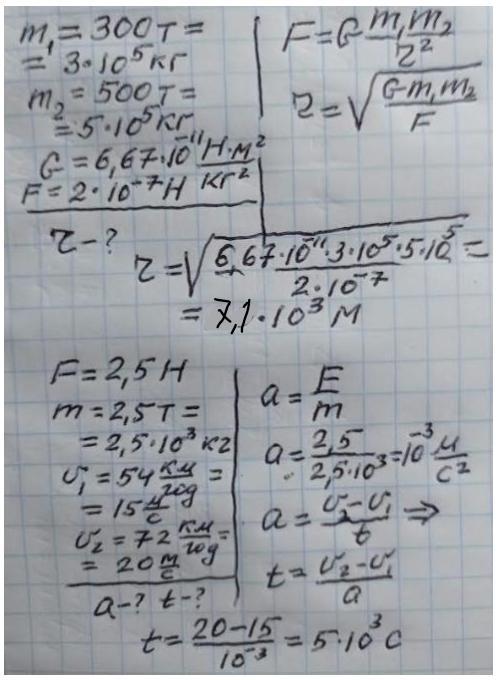 m₁ = 300 т =
= 3·10⁵ кг
m₂ = 500 т =
= 5·10⁵ кг
G = 6,67·10⁻¹¹ Н·м²/кг²
F = 2·10⁻⁷ Н
r - ?
F = G m₁m₂/r²
r = √(G m₁m₂/F)
r = √(6,67·10⁻¹¹·3·10⁵·5·10⁵/2·10⁻⁷) =
= 7,1·10³ м
F = 2,5 Н
m = 2,5 т =
= 2,5·10³ кг
υ₁ = 54 км/год =
= 15 м/с
υ₂ = 72 км/год =
= 20 м/с
a - ? t - ?
a = F/m
a = 2,5/2,5·10³ = 10⁻³ м/с²
a = υ₂ - υ₁/t ⇒
t = υ₂ - υ₁/a
t = 20 - 15/10⁻³ = 5·10³ с